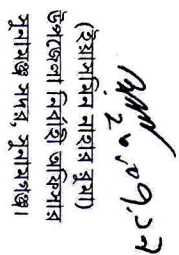 (ইয়াসমিন নাহার রুমা)
উপজেলা নির্বাহী অফিসার
সুনামগঞ্জ সদর, সুনামগঞ্জ।